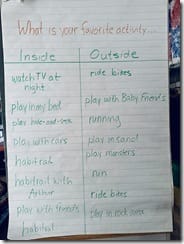 What is your favorite activity...
Inside
Outside
watch TV at night
ride bikes
play in my bed
play with Baby Friends
play hide-and-seek
running
play with cars
play in sand
habitrail
play monsters
habitrail with Arthur
run
play with friends
ride bikes
habitat
play in rock area